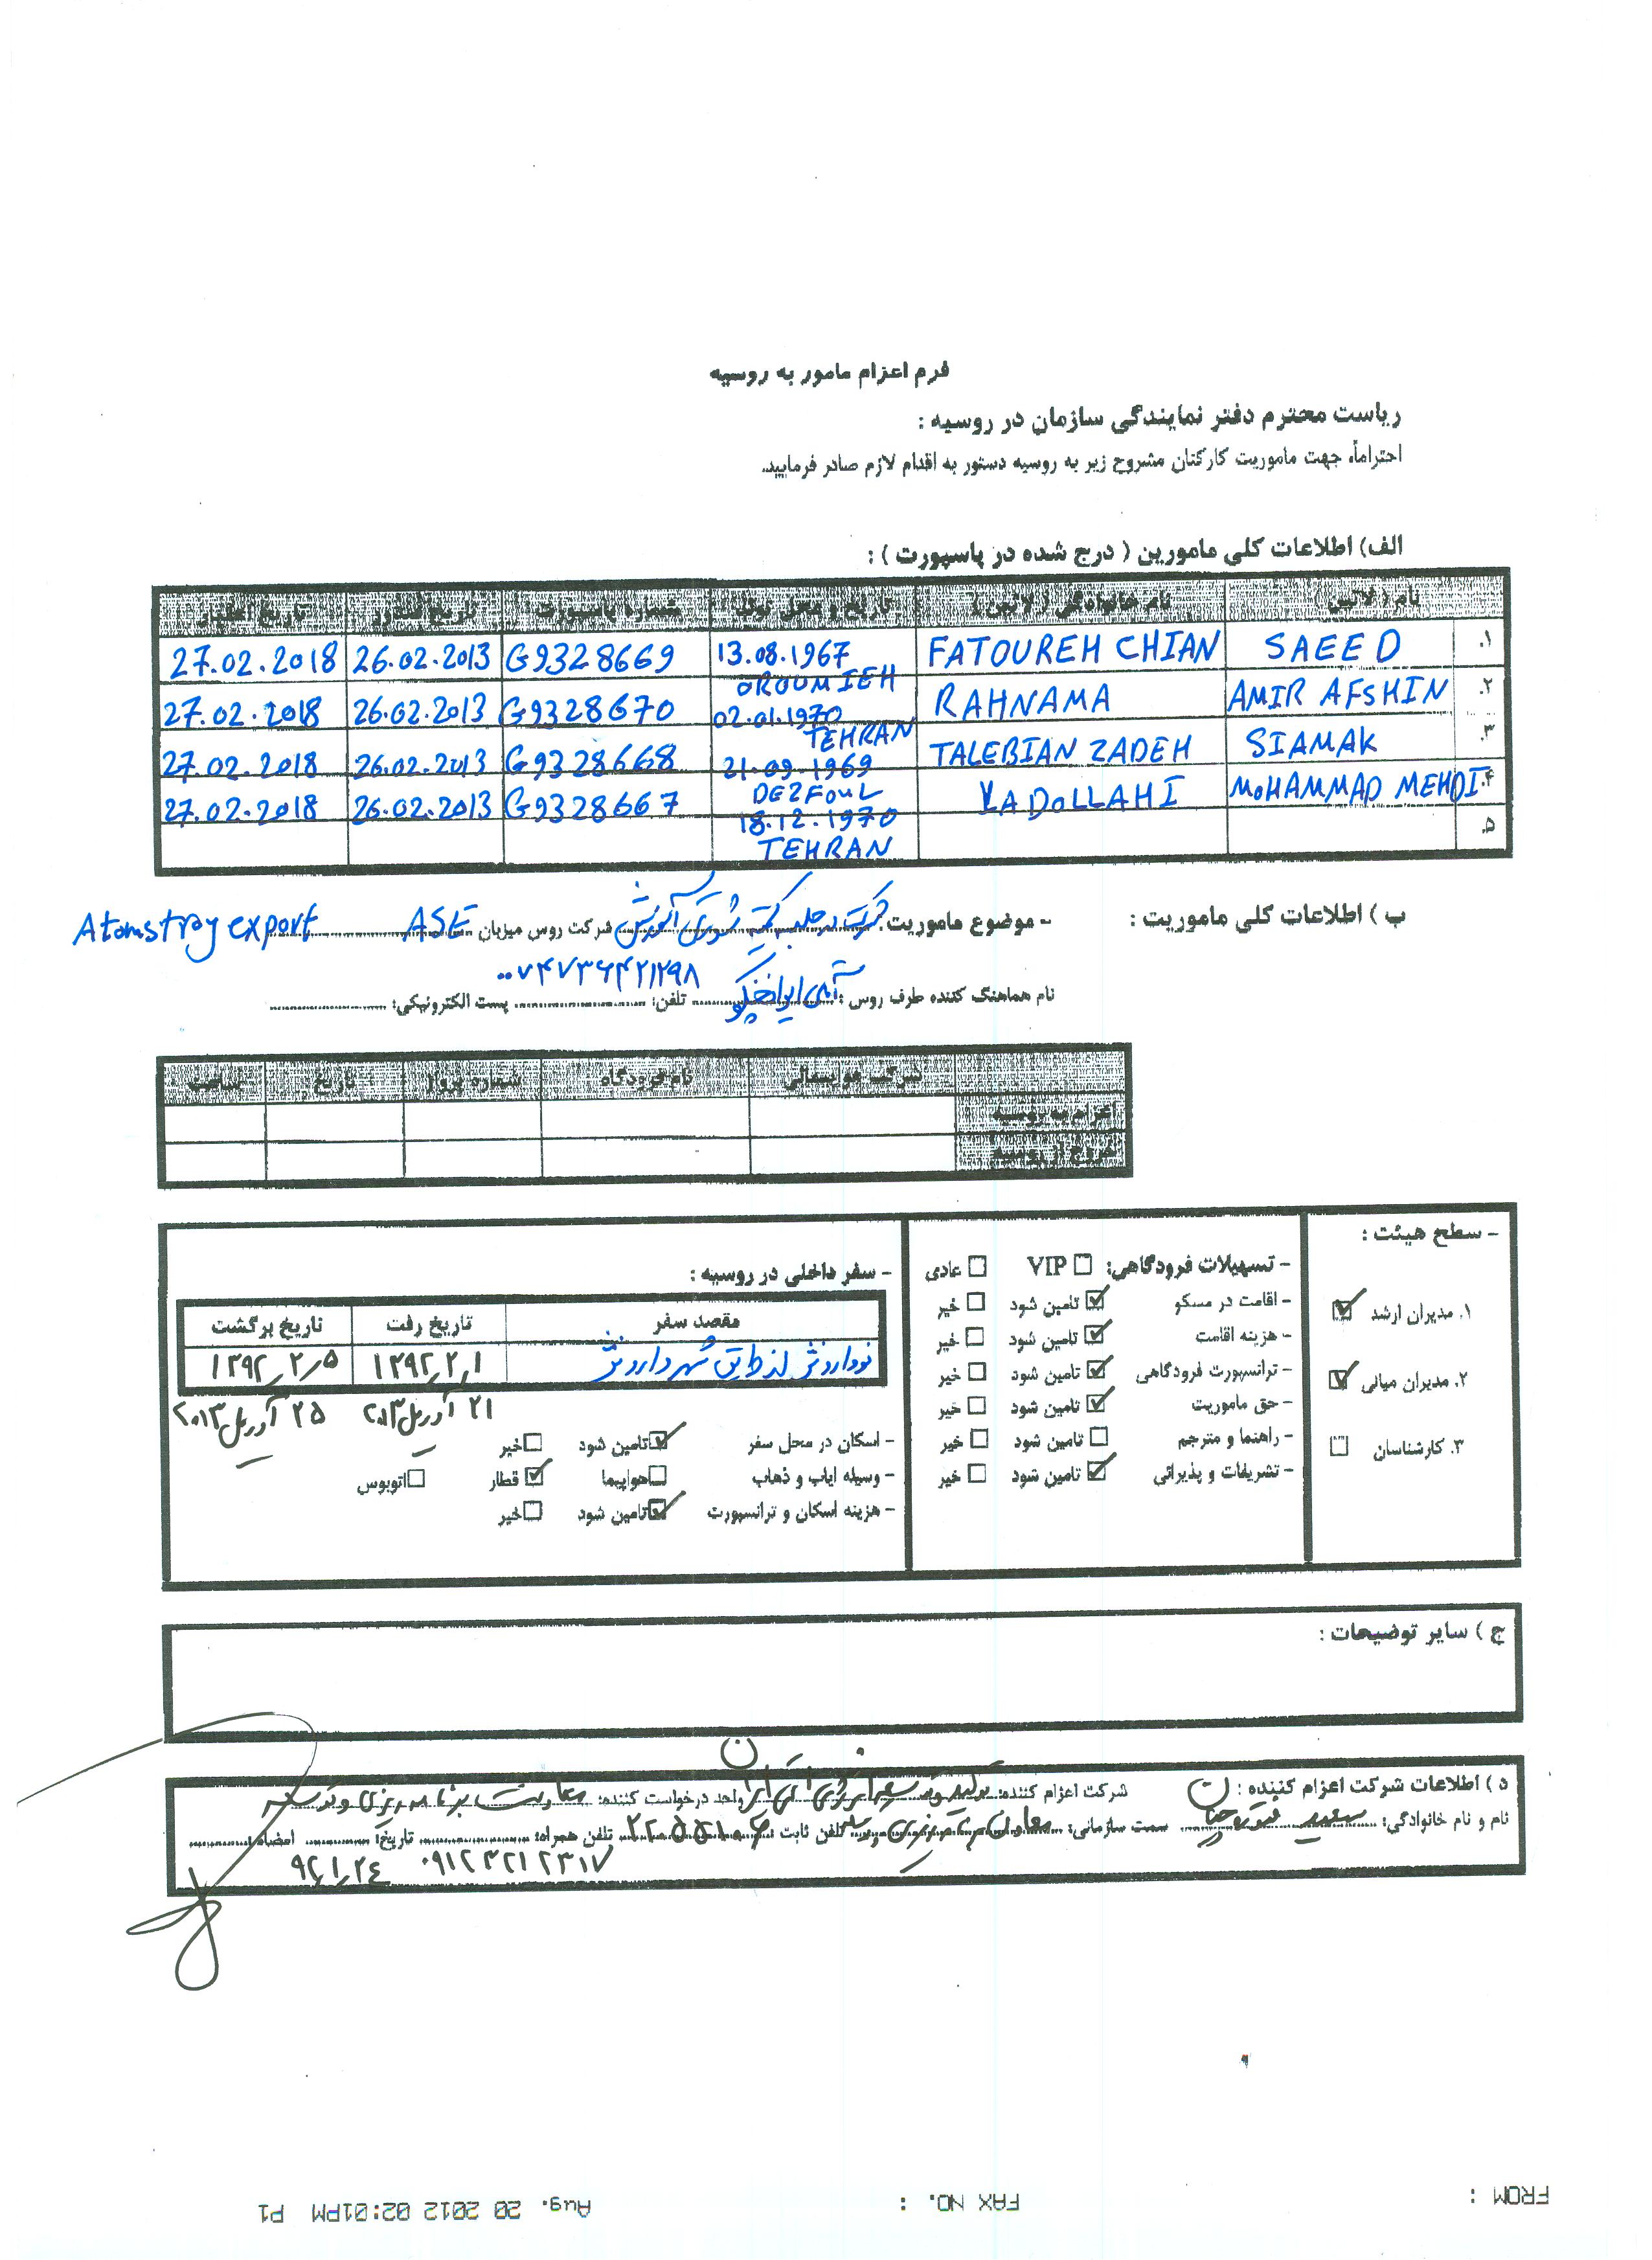 فرم اعزام مامور به روسیه
ریاست محترم دفتر نمایندگی سازمان در روسیه :
احتراماً، جهت ماموریت کارکنان مشروح زیر به روسیه دستور به اقدام لازم صادر فرمایید.
الف) اطلاعات کلی مامورین ( درج شده در پاسپورت ) :
نام ( لاتین ) نام خانوادگی ( لاتین ) تاریخ و محل تولد شماره پاسپورت تاریخ صدور تاریخ اعتبار
۱. SAEED FATOUREH CHIAN 13.08.1967 OROUMIEH G9328669 26.02.2013 27.02.2018
۲. AMIR AFSHIN RAHNAMA 02.01.1970 TEHRAN G9328670 26.02.2013 27.02.2018
۳. SIAMAK TALEBIAN ZADEH 21.09.1969 DEZFOUL G9328668 26.02.2013 27.02.2018
۴. MOHAMMAD MEHDI YADOLLAHI 18.12.1970 TEHRAN G9328667 26.02.2013 27.02.2018
۵.
ب ) اطلاعات کلی ماموریت : - موضوع ماموریت: شرکت در جلسه کمیته آموزش شرکت روس میزبان ASE Atomstroyexport
نام هماهنگ کننده طرف روس : آقای تلفن: ۰۰۷۴۷۳۶۴۲۱۲۹۸ پست الکترونیکی:
شرکت هواپیمائی نام فرودگاه شماره پرواز تاریخ ساعت
اعزام به روسیه
خروج از روسیه
- سطح هیئت :
۱. مدیران ارشد
۲. مدیران میانی
۳. کارشناسان
- تسهیلات فرودگاهی: VIP عادی
- اقامت در مسکو تامین شود خیر
- هزینه اقامت تامین شود خیر
- ترانسپورت فرودگاهی تامین شود خیر
- حق ماموریت تامین شود خیر
- راهنما و مترجم تامین شود خیر
- تشریفات و پذیرائی تامین شود خیر
- سفر داخلی در روسیه :
مقصد سفر تاریخ رفت تاریخ برگشت
نووارونژ شهر وارونژ ۱۳۹۲٫۲٫۱ ۱۳۹۲٫۲٫۵
۲۱ آوریل ۲۰۱۳ ۲۵ آوریل ۲۰۱۳
- اسکان در محل سفر تامین شود خیر
- وسیله ایاب و ذهاب هواپیما قطار اتوبوس
- هزینه اسکان و ترانسپورت تامین شود خیر
ج ) سایر توضیحات :
د ) اطلاعات شرکت اعزام کننده : شرکت اعزام کننده: تولید و توسعه انرژی اتمی ایران واحد درخواست کننده: معاونت برنامه ریزی و توسعه
نام و نام خانوادگی: سعید فتوره چیان سمت سازمانی: معاون برنامه ریزی و توسعه تلفن ثابت تلفن همراه: ۰۹۱۲۳۲۱۲۳۱۷ تاریخ: ۹۲٫۱٫۲۴ امضاء:
FROM : FAX NO. : Aug. 20 2012 02:01PM P1